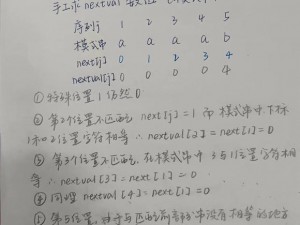 手工求nextval数组
序列j 1 2 3 4 5
模式串 a a a a b
next[j] 0 1 2 3 4
nextval[j] 0 0 0 0 4
① 特殊位置1仍然0
② 第2个位置不匹配 next[j]=1 而模式串中下标
1和2位置字符相等 ∴nextval[2]=next[1]=0
③ 第3个位置不匹配, 模式串中3与1位置字符相
等 ∴nextval[3]=next[1]=0
④ 同理 nextval[4]=next[1]=0
第5位置, 没有相等的地方